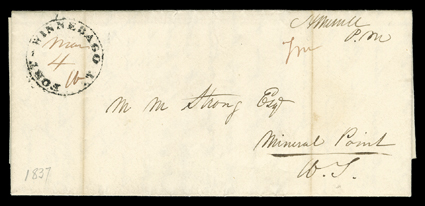 FORT-WINNEBAGO
Mar
4
H Merrell
P.M
M M Strong Esqr
Mineral Point
W. T.
1837